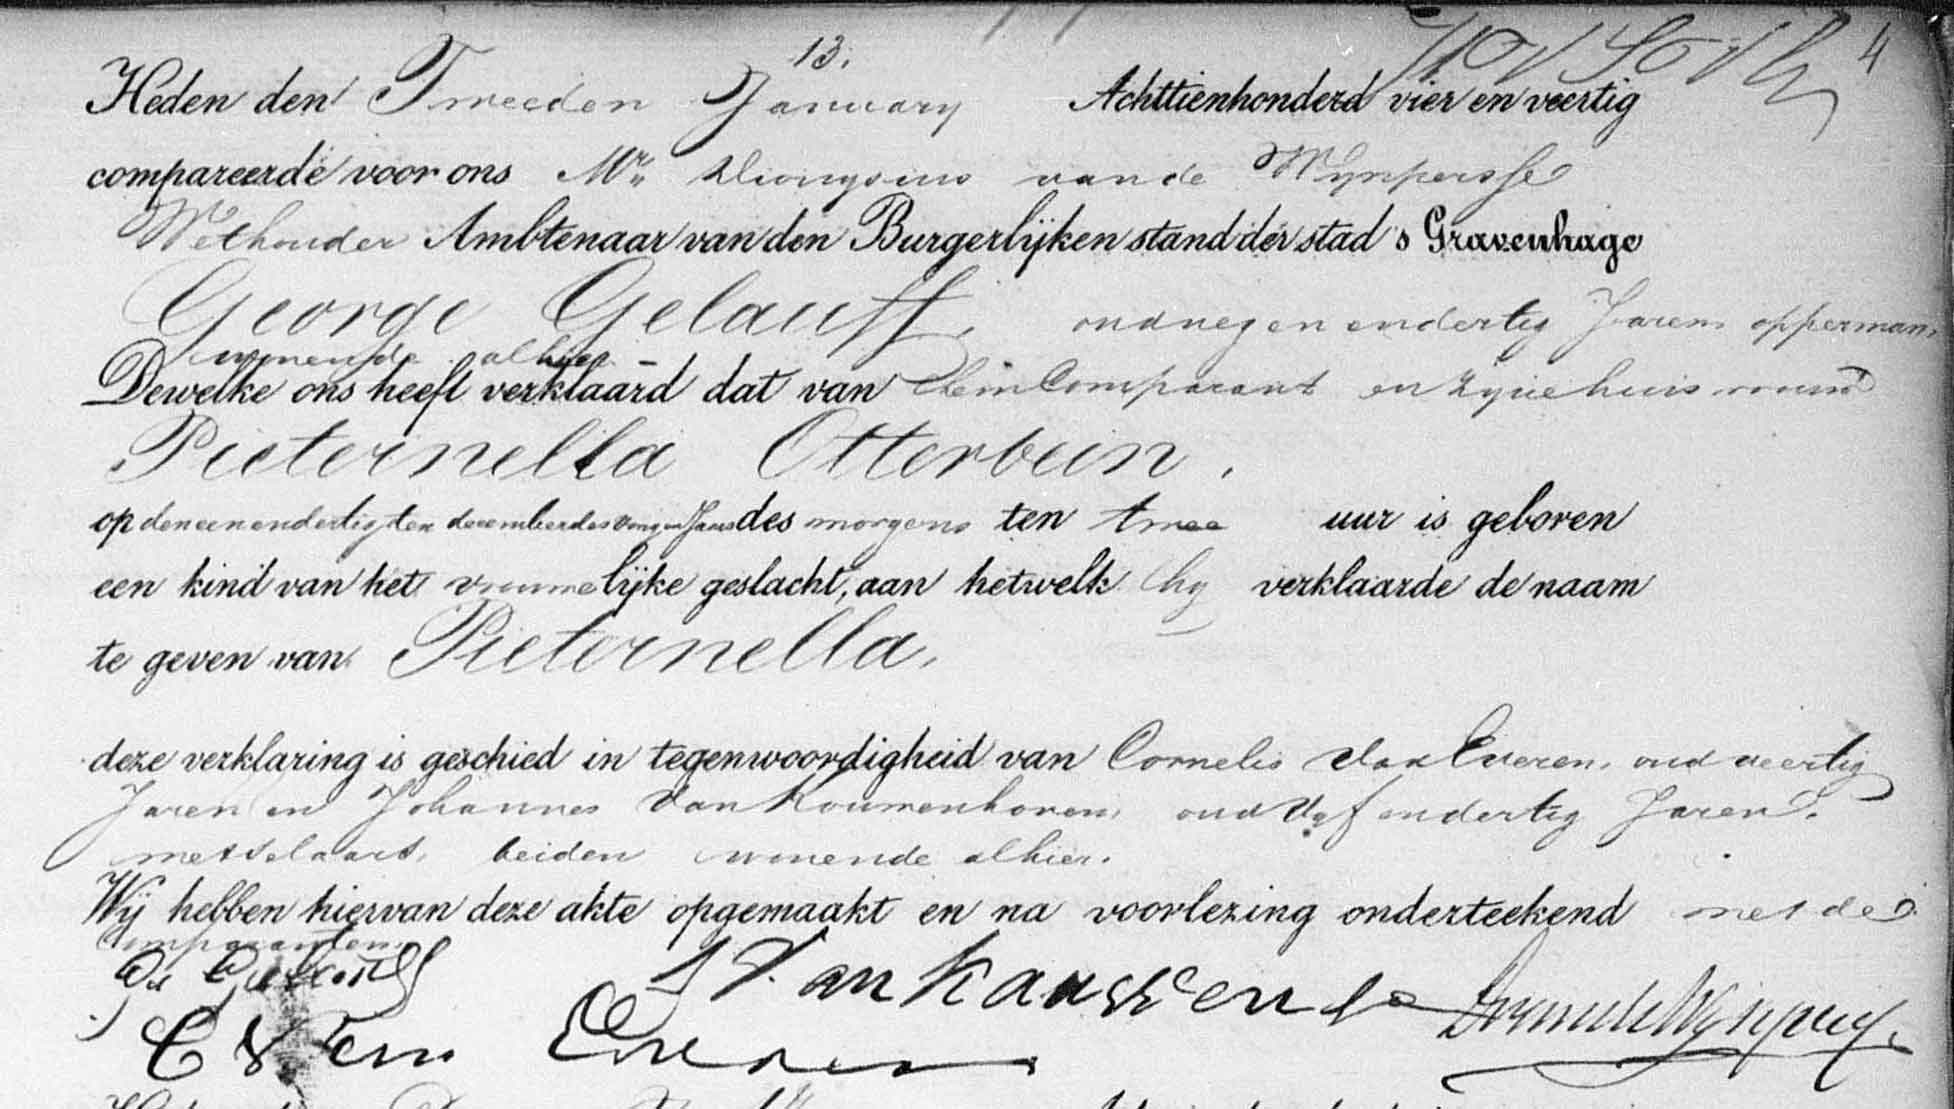 13.
4
Heden den Tweeden January Achttienhonderd vier en veertig
compareerde voor ons Mr. Dionysius van de Wynpersse
Wethouder Ambtenaar van den Burgerlijken stand der stad s Gravenhage
George Gelauff, oud negen en dertig Jaren opperman,
wonende alhier –
Dewelke ons heeft verklaard dat van hem Comparant en zyne huisvrouw
Pieternella Otterbein,
op den een en dertigsten december des vorigen Jaars des morgens ten twee uur is geboren
een kind van het vrouwelijke geslacht, aan hetwelk hy verklaarde de naam
te geven van Pieternella,
deze verklaring is geschied in tegenwoordigheid van Cornelis van Everen, oud veertig
Jaren en Johannes van Kouwenhoven, oud vyf en dertig Jaren,
metselaars, beiden wonende alhier.
Wij hebben hiervan deze akte opgemaakt en na voorlezing onderteekend met de
Comparanten
C Van Everen